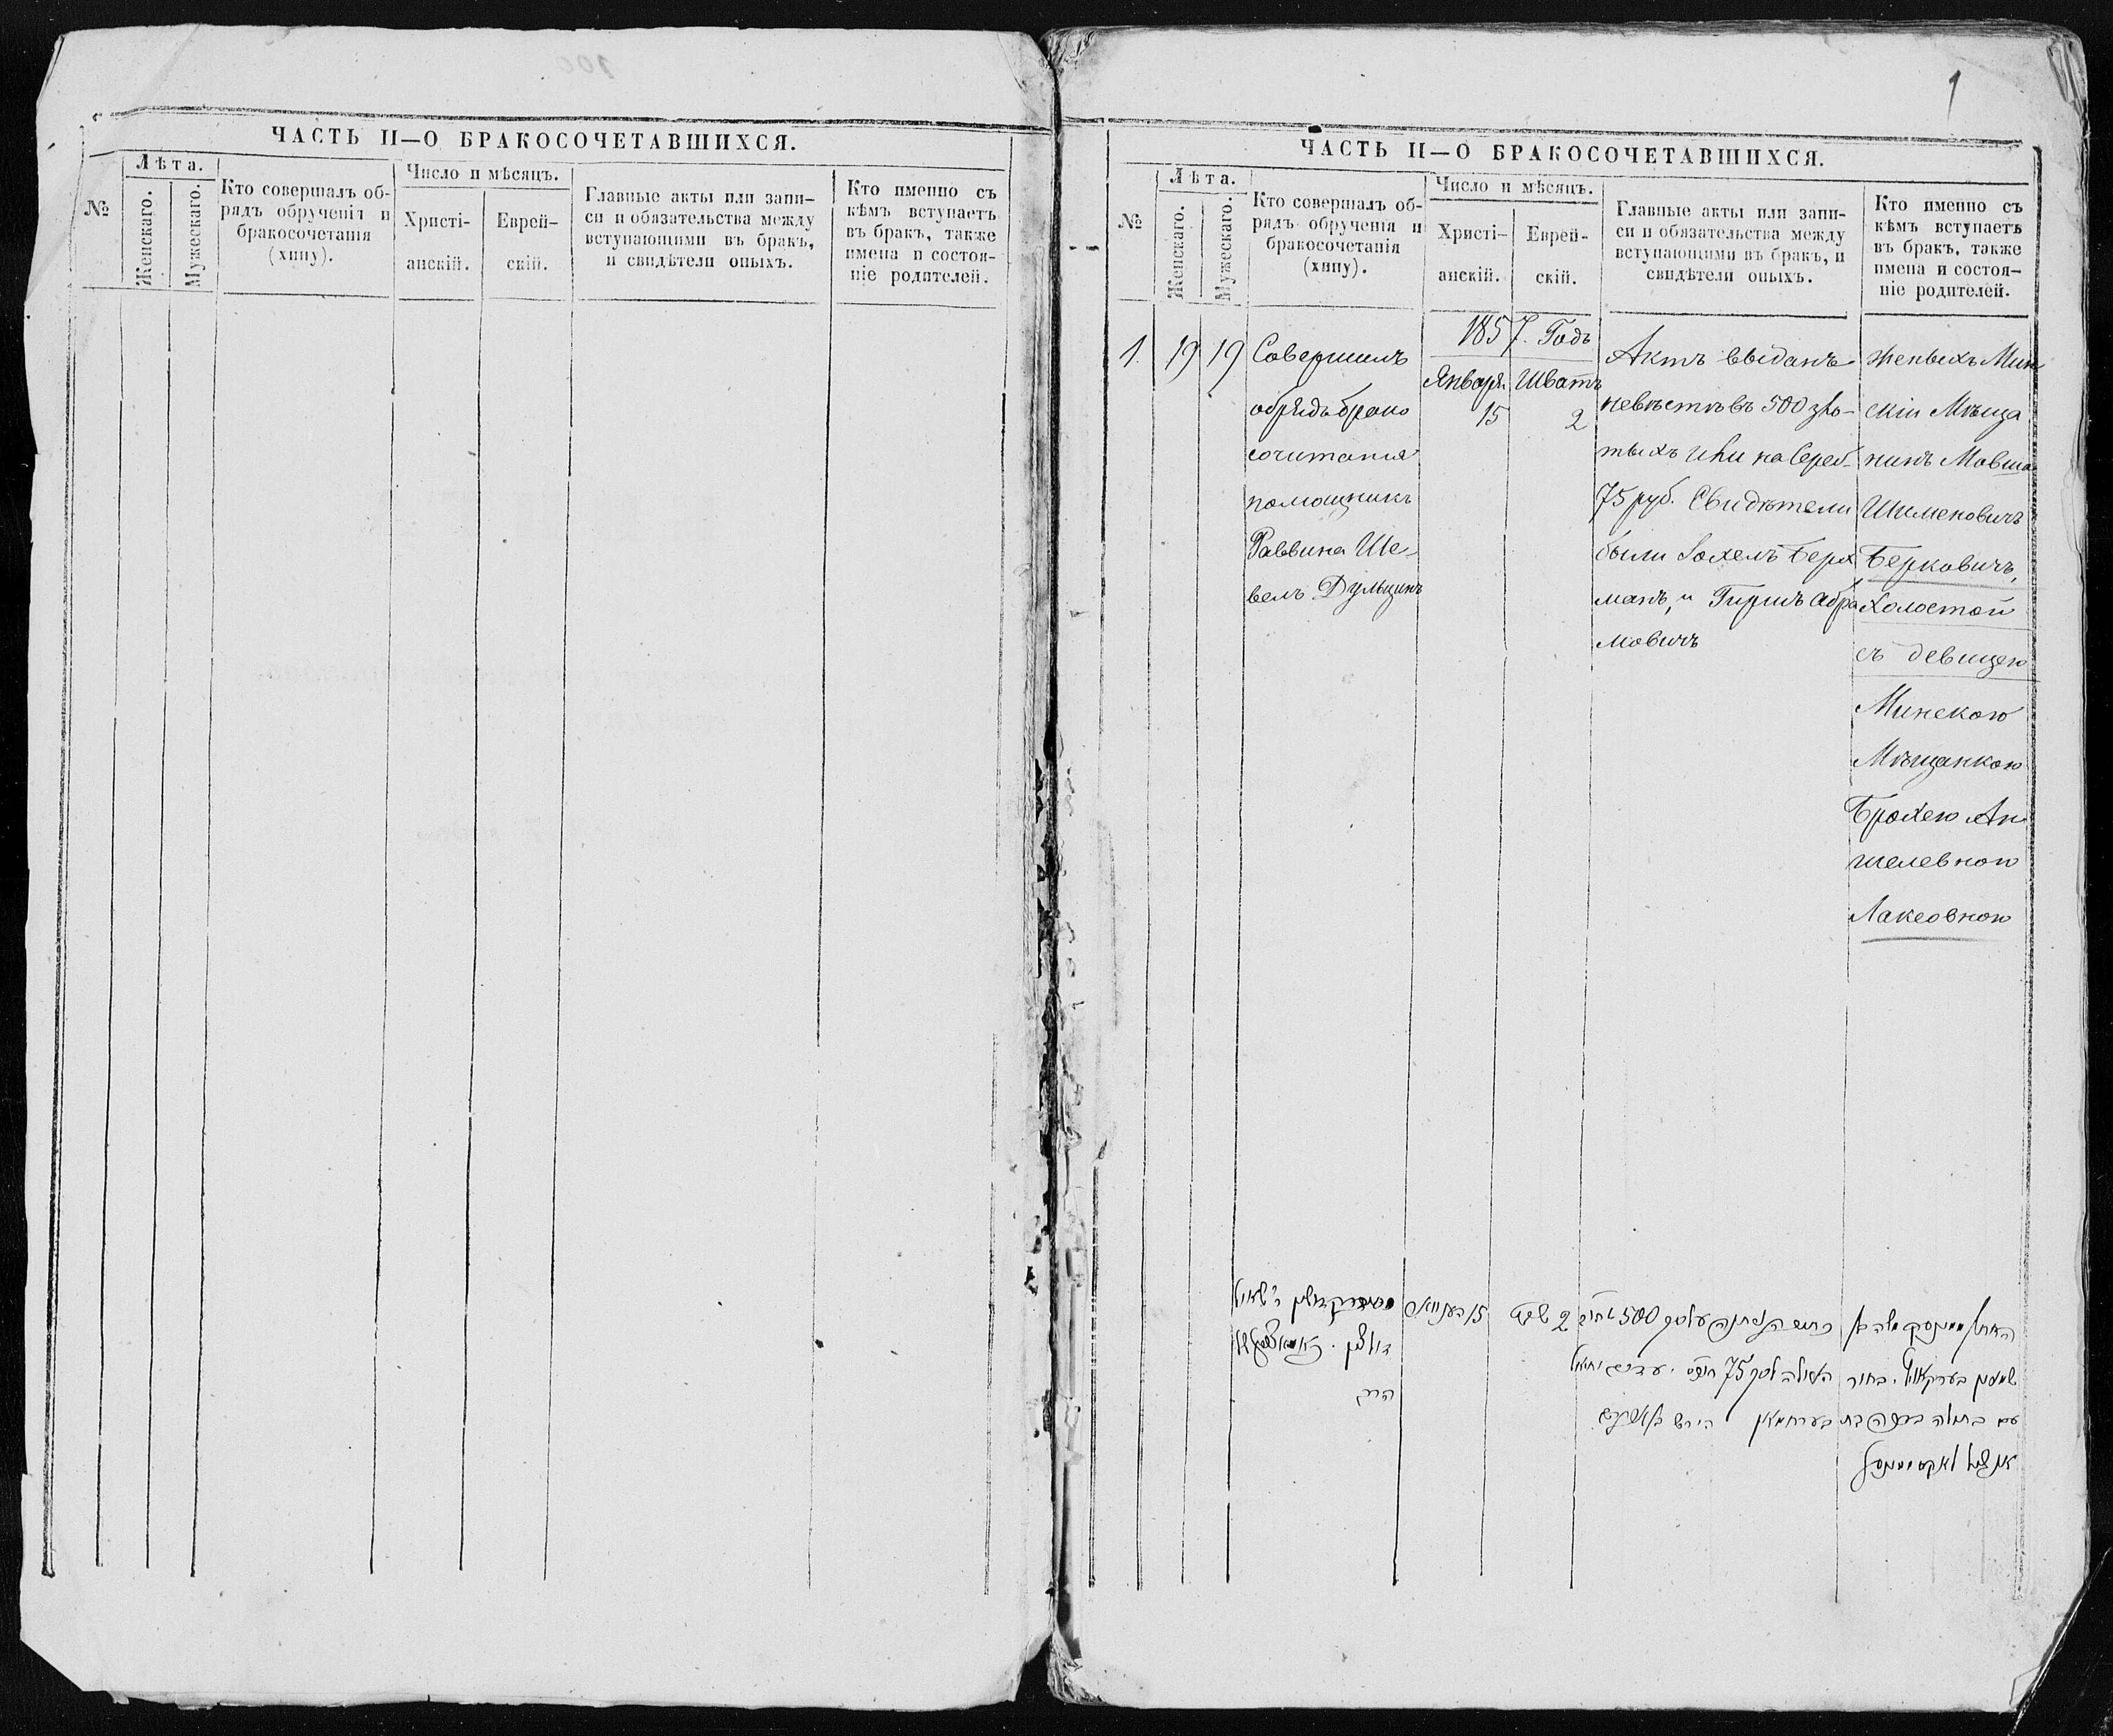 ЧАСТЬ II—О БРАКОСОЧЕТАВШИХСЯ.
№
Лѣта.
Женскаго.
Мужескаго.
Кто совершалъ об-
рядъ обрученія и
бракосочетанія
(хипу).
Число и мѣсяцъ.
Христі-
анскій.
Еврей-
скій.
Главные акты или запи-
си и обязательства между
вступающими въ бракъ,
и свидѣтели оныхъ.
Кто именно съ
кѣмъ вступаетъ
въ бракъ, также
имена и состоя-
ніе родителей.
1
ЧАСТЬ II—О БРАКОСОЧЕТАВШИХСЯ.
№
Лѣта.
Женскаго.
Мужескаго.
Кто совершалъ об-
рядъ обрученія и
бракосочетанія
(хипу).
Число и мѣсяцъ.
Христі-
анскій.
Еврей-
скій.
Главные акты или запи-
си и обязательства между
вступающими въ бракъ, и
свидѣтели оныхъ.
Кто именно съ
кѣмъ вступаетъ
въ бракъ, также
имена и состоя-
ніе родителей.
1857. Годъ
1.
19
19
Совершилъ
обрядъ брако
сочитания
помощникъ
Раввина Ше-
велъ Дульцинъ
Января
15
Шватъ
2
Актъ выданъ
невѣстѣ въ 500 зло-
тыхъ или на Сереб-
75 руб. Свидѣтели
были Іохелъ Берх
манъ, и Гиршъ Абра
мовичъ
женыхъ Мин
скіи Мѣща
нинъ Мовша
Шименовичъ
Берковичъ,
Холостой
съ девицею
Минскою
Мѣщанкою
Брохею Ан
шелевною
Лакеовною
15
2 שבט
500
75
בערקאוויץ . בחור
עם בתולה
בערחמאן הירש